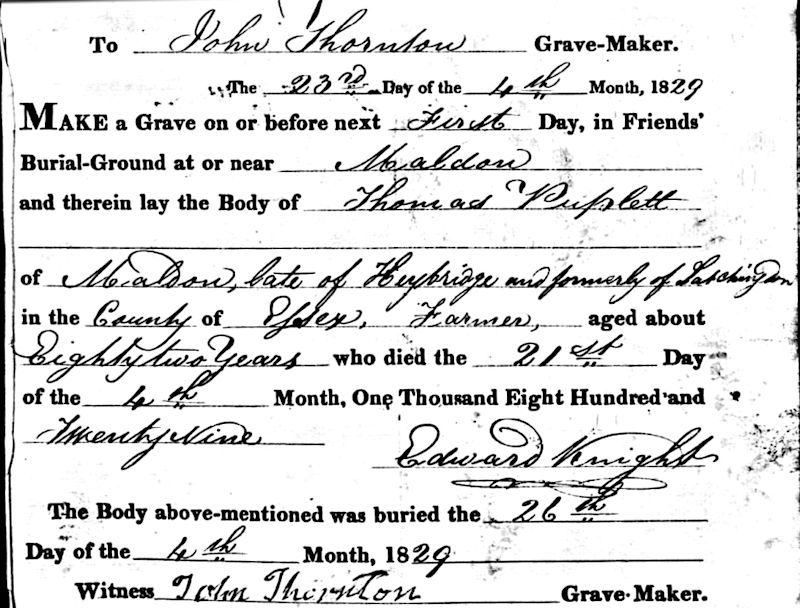 To John Thornton Grave-Maker.
The 23rd Day of the 4th Month, 1829
MAKE a Grave on or before next First Day, in Friends'
Burial-Ground at or near Maldon
and therein lay the Body of Thomas Pusslett
of Maldon, late of Heybridge and formerly of Latchingdon
in the County of Essex, Farmer, aged about
Eighty two Years who died the 21st Day
of the 4th Month, One Thousand Eight Hundred and
Twenty Nine
Edward Knight
The Body above-mentioned was buried the 26th
Day of the 4th Month, 1829
Witness John Thornton Grave-Maker.